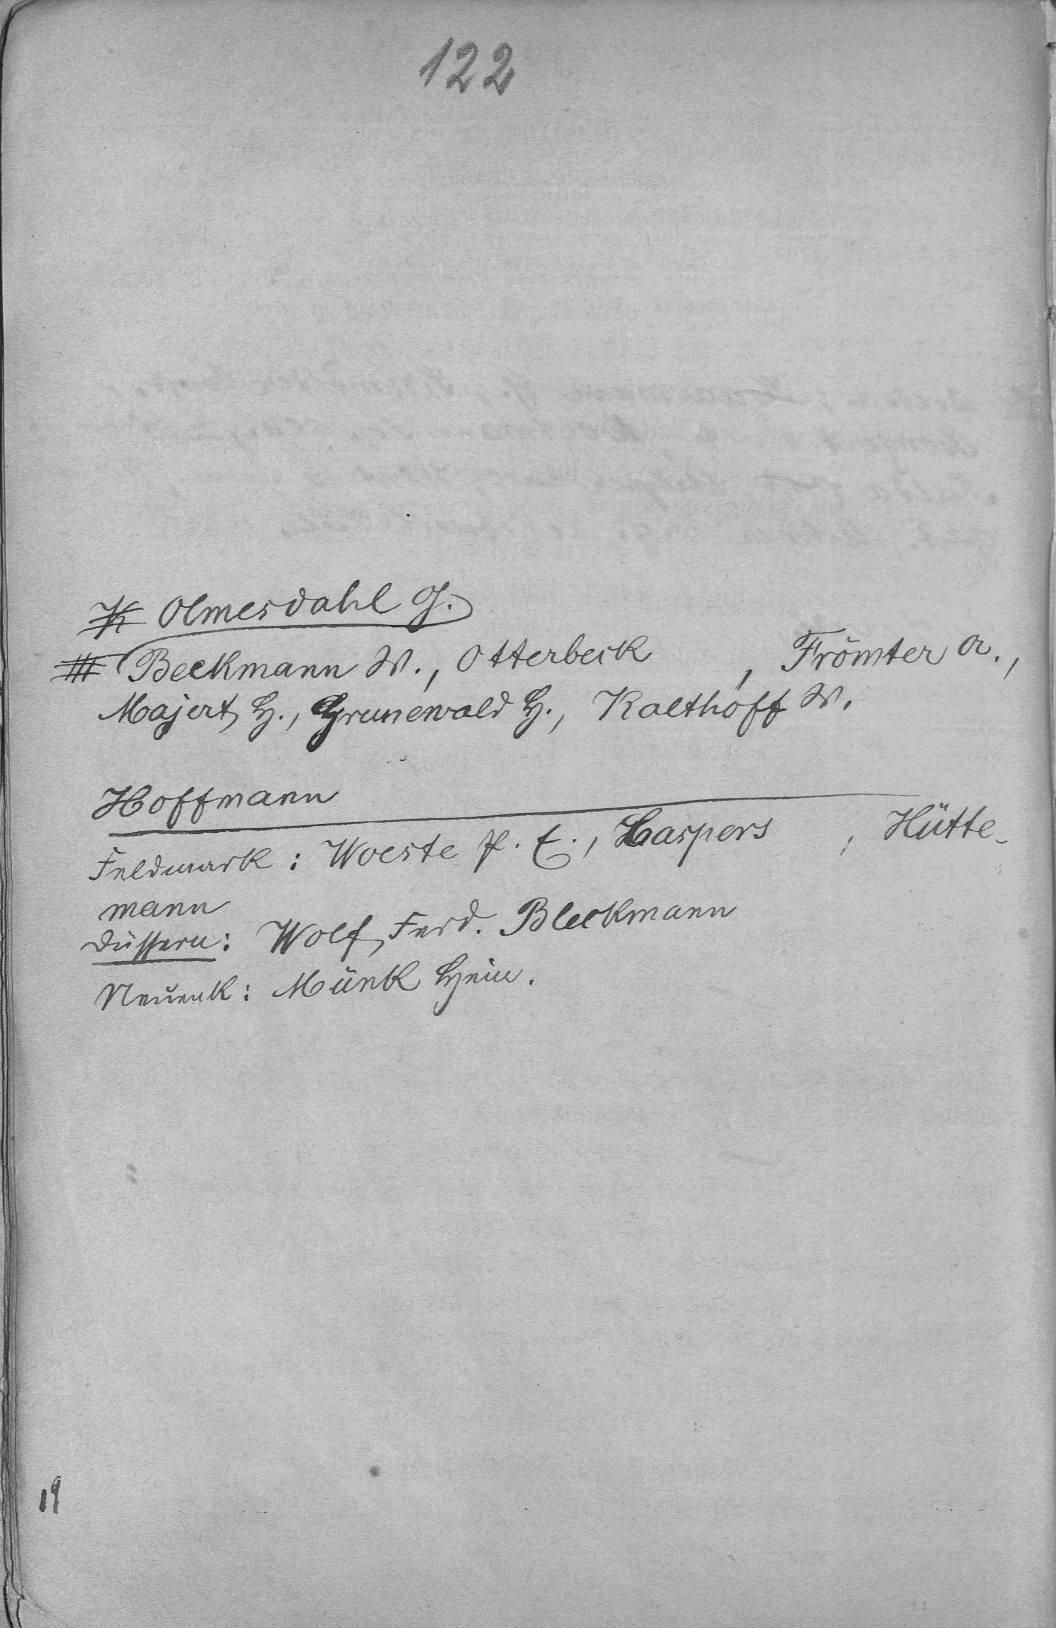 122
Olmesdahl G.
Beckmann W., Otterbeck , Frömter A.,
Majert H., Grunewald H., Kalthoff W.
Hoffmann
Feldmark: Woeste P. E., Caspers , Hütte-
mann
Düssern: Wolf, Ferd. Bleckmann
Neuenk: Münk Hein.
19